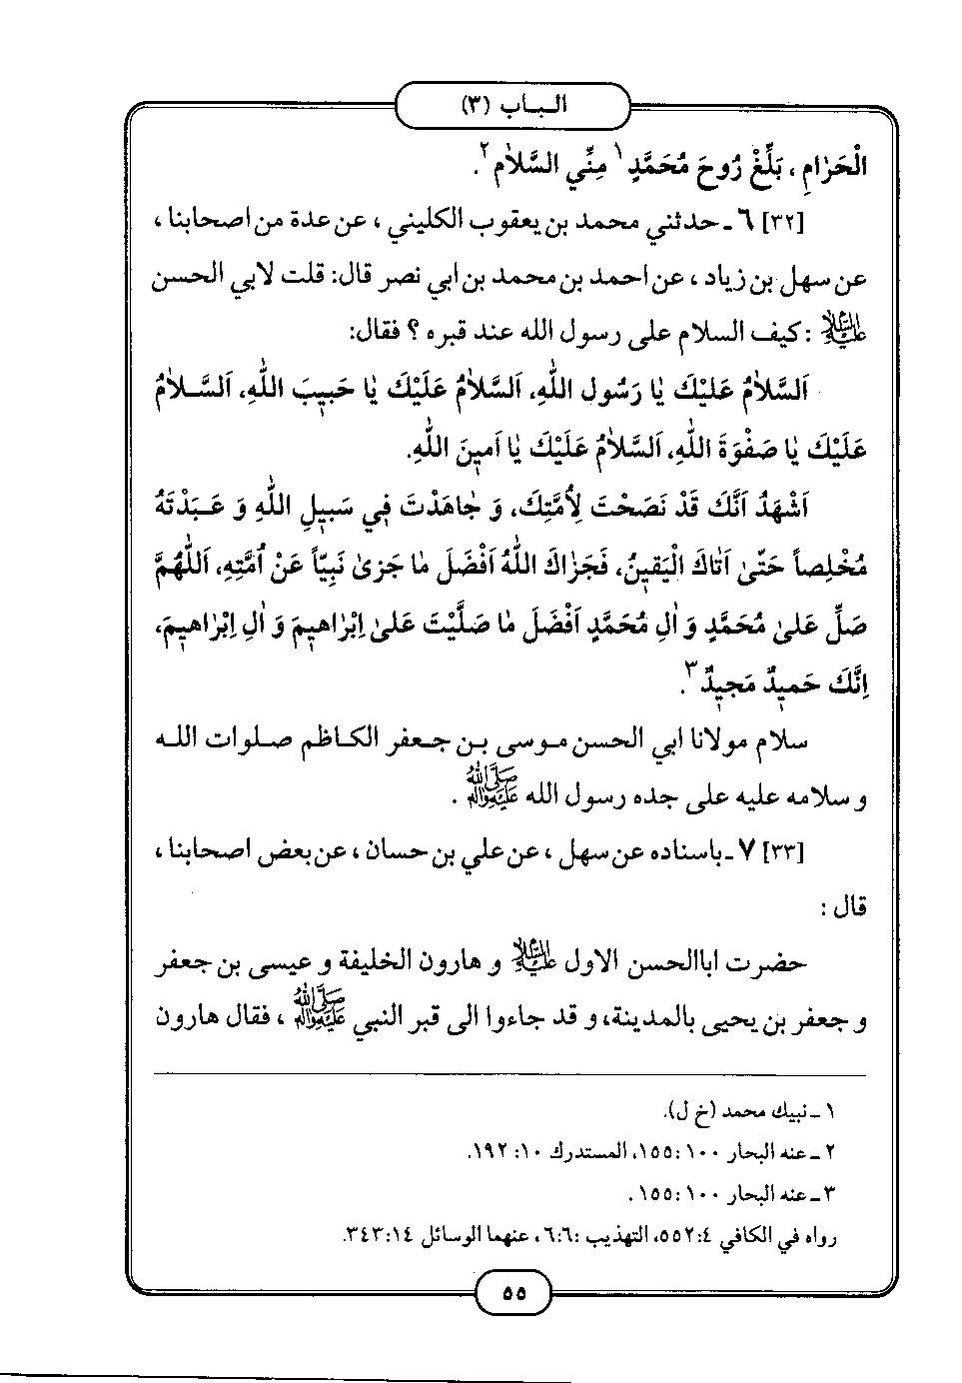 الـبـاب (٣)
الْحَرٰامِ ، بَلِّغْ رُوحَ مُحَمَّدٍ ١ مِنِّي السَّلاٰم ٢.
[٣٢] ٦ ـ حدثني محمد بن يعقوب الكليني ، عن عدة من اصحابنا ،
عن سهل بن زياد ، عن احمد بن محمد بن ابي نصر قال: قلت لابي الحسن
عليه السلام : كيف السلام على رسول الله عند قبره ؟ فقال:
اَلسَّلاٰمُ عَلَيْكَ يٰا رَسُول اللّٰهِ، اَلسَّلاٰمُ عَلَيْكَ يٰا حَبيبَ اللّٰهِ، اَلسَّـلاٰمُ
عَلَيْكَ يٰا صَفْوَةَ اللّٰهِ، اَلسَّلاٰمُ عَلَيْكَ يٰا اَمينَ اللّٰهِ.
اَشْهَدُ اَنَّكَ قَدْ نَصَحْتَ لِاُمَّتِكَ، وَ جٰاهَدْتَ في سَبيلِ اللّٰهِ وَ عَـبَدْتَهُ
مُخْلِصاً حَتّىٰ اَتٰاكَ الْيَقينُ، فَجَزٰاكَ اللّٰهُ اَفْضَلَ مٰا جَزىٰ نَبِيّاً عَنْ اُمَّتِهِ، اَللّٰهُمَّ
صَلِّ عَلىٰ مُحَمَّدٍ وَ اٰلِ مُحَمَّدٍ اَفْضَلَ مٰا صَلَّيْتَ عَلىٰ اِبْرٰاهيمَ وَ اٰلِ اِبْرٰاهيمَ،
اِنَّكَ حَميدٌ مَجيدٌ ٣.
سلام مولانا ابي الحسن مـوسى بـن جـعفر الكـاظم صـلوات اللـه
و سلامه عليه على جده رسول الله صلى الله عليه وآله .
[٣٣] ٧ ـ باسناده عن سهل ، عن علي بن حسان ، عن بعض اصحابنا ،
قال :
حضرت اباالحسن الاول عليه السلام و هارون الخليفة و عيسى بن جعفر
و جعفر بن يحيى بالمدينة، و قد جاءوا الى قبر النبي صلى الله عليه وآله ، فقال هارون
١ ـ نبيك محمد (خ ل).
٢ ـ عنه البحار ١٠٠: ١٥٥، المستدرك ١٠: ١٩٢.
٣ ـ عنه البحار ١٠٠: ١٥٥ .
رواه في الكافي ٤: ٥٥٢، التهذيب :٦:٦ ، عنهما الوسائل ١٤: ٣٤٣.
٥٥